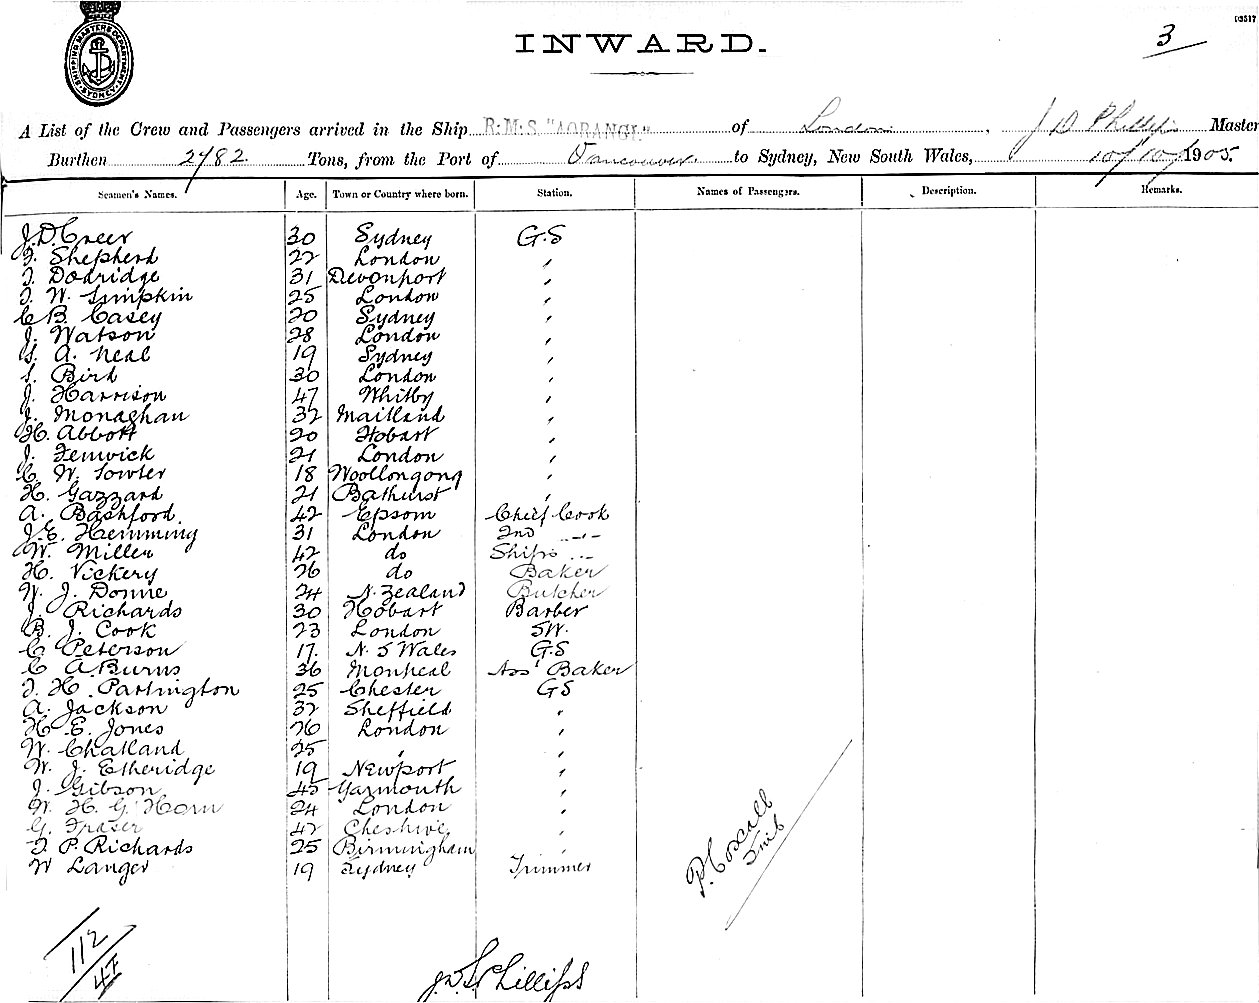 10517
3
SHIPPING MASTERS DEPARTMENT SYDNEY
INWARD.
A List of the Crew and Passengers arrived in the Ship R.M.S. "AORANGI." of London, J D Phillips Master
Burthen 2782 Tons, from the Port of Vancouver to Sydney, New South Wales, 10/10/1905.
Seamen's Names. Age. Town or Country where born. Station. Names of Passengers. Description. Remarks.
J. D. Creer 30 Sydney G.S
F. Shepherd 22 London "
T. Dodridge 31 Devonport "
T. W. Simpkin 25 London "
C B. Casey 20 Sydney "
J. Watson 28 London "
S. A. Neal 19 Sydney "
S. Bird 30 London "
J. Harrison 47 Whitby "
J. Monaghan 32 Maitland "
H. Abbott 20 Hobart "
J. Fenwick 21 London "
C. W. Fowler 18 Woollongong "
H. Gazzard 21 Bathurst "
A. Bashford 42 Epsom Chief Cook
J. E. Hemming 31 London 2nd "
W. Miller 42 do Ships "
H. Vickery 26 do Baker
W. J. Donne 24 N. Zealand Butcher
J. Richards 30 Hobart Barber
B. J. Cook 23 London SW.
C Peterson 17. N. S Wales G.S
C A Burns 36 Monreal Ass' Baker
T. H. Partington 25 Chester GS
A. Jackson 32 Sheffield "
H E. Jones 26 London "
W. Chatland 25 " "
W. J. Etheridge 19 Newport "
J. Gibson 45 Yarmouth "
W. H. G. Horn 24 London "
G. Fraser 42 Cheshire "
T. P. Richards 25 Birmingham "
W Langer 19 Sydney Trimmer
P. Coxall
112/47
J. D. S. Phillips